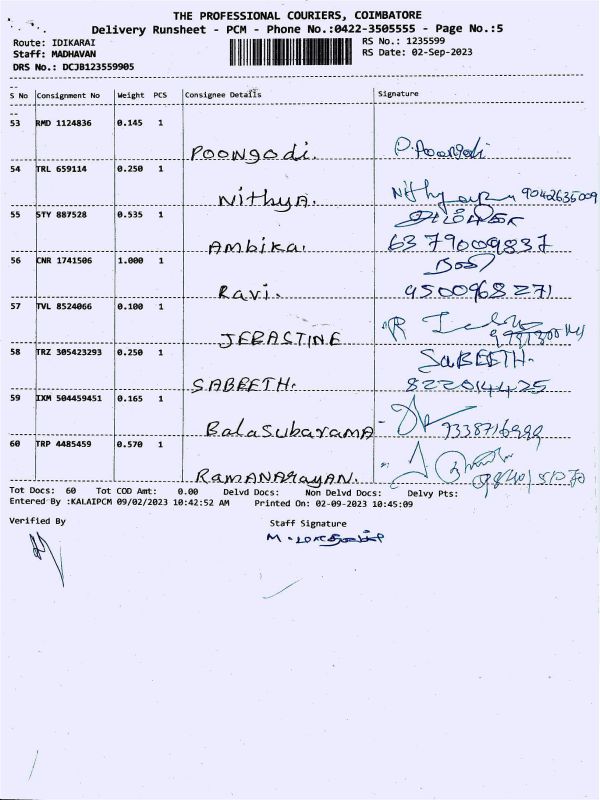 THE PROFESSIONAL COURIERS, COIMBATORE
Delivery Runsheet - PCM - Phone No.:0422-3505555 - Page No.:5
Route: IDIKARAI
Staff: MADHAVAN
DRS No.: DCJB123559905
RS No.: 1235599
RS Date: 02-Sep-2023
S No Consignment No Weight PCS Consignee Details Signature
53 RMD 1124836 0.145 1
Poongodi. P. Poongodi
54 TRL 659114 0.250 1
Nithya. 9042635009
55 STY 887528 0.535 1
அம்பிகா
Ambika. 6379009837
56 CNR 1741506 1.000 1
ரவி
Ravi. 9500968271
57 TVL 8524066 0.100 1
JEBASTINE
58 TRZ 305423293 0.250 1
SABEETH.
SABEETH. 8220144425
59 IXM 504459451 0.165 1
Balasubarama- 9338716999
60 TRP 4485459 0.570 1
RAMANARAyAN.
Tot Docs: 60 Tot COD Amt: 0.00 Delvd Docs: Non Delvd Docs: Delvy Pts:
Entered By :KALAIPCM 09/02/2023 10:42:52 AM Printed On: 02-09-2023 10:45:09
Verified By Staff Signature